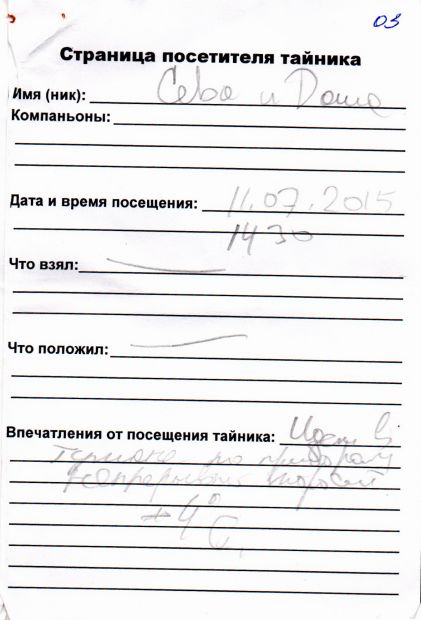 03
Страница посетителя тайника
Имя (ник): Сева и Даша
Компаньоны:
Дата и время посещения: 11.07.2015
14 30
Что взял:
Что положил:
Впечатления от посещения тайника: Идем в
по
+4°C